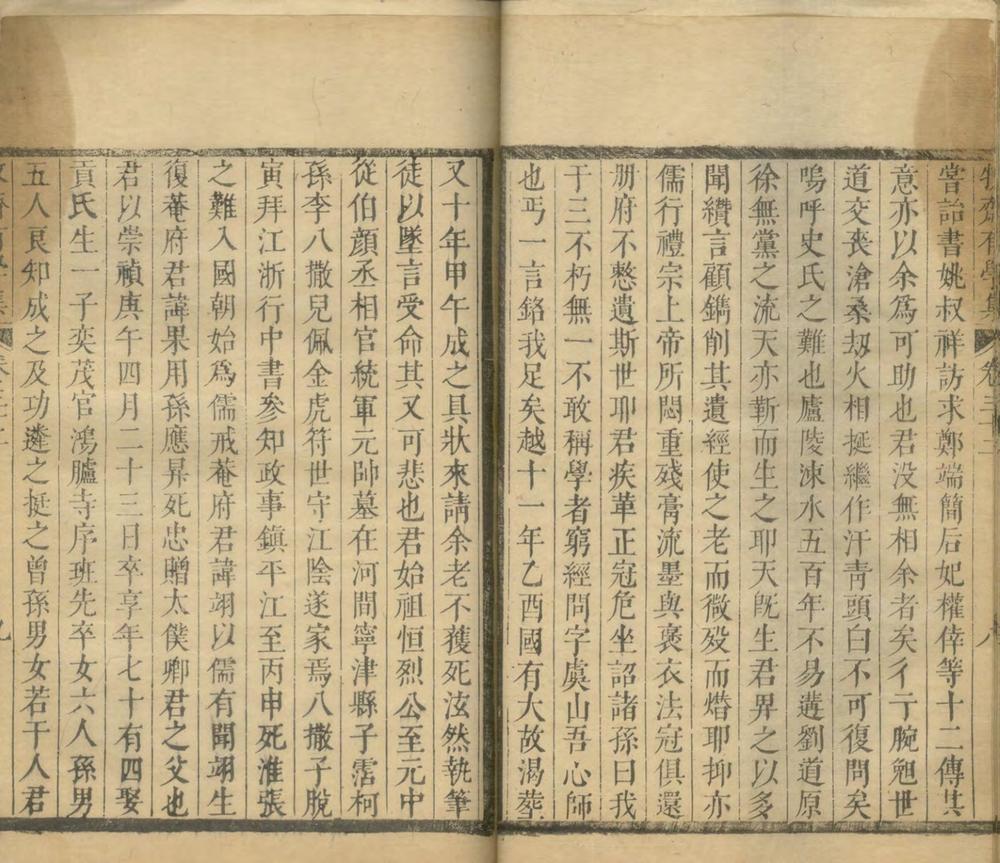 牧齋有學集 卷三十二 八
嘗詒書姚叔祥訪求鄭端簡后妃權倖等十二傳其
意亦以余爲可助也君没無相余者矣彳亍腕勉世
道交喪滄桑刧火相挻繼作汗靑頭白不可復問矣
嗚呼史氏之難也廬陵涑水五百年不易遘劉道原
徐無黨之流天亦靳而生之耶天旣生君畀之以多
聞纘言顧鐫削其遺經使之老而微歿而熸耶抑亦
儒行禮宗上帝所悶重殘膏流墨與褒衣法冠俱還
册府不憗遺斯世耶君疾革正冠危坐詔諸孫曰我
于三不朽無一不敢稱學者窮經問字虞山吾心師
也丐一言銘我足矣越十一年乙酉國有大故渴葬
又十年甲午成之具狀來請余老不獲死泫然執筆
徒以墜言受命其又可悲也君始祖恒烈公至元中
從伯顏丞相官統軍元帥墓在河間寧津縣子霑柯
孫李八撒兒佩金虎符世守江陰遂家焉八撒子脫
寅拜江浙行中書參知政事鎮平江至丙申死淮張
之難入國朝始爲儒戒菴府君諱翊以儒有聞翊生
復菴府君諱果用孫應昇死忠贈太僕卿君之父也
君以崇禎庚午四月二十三日卒享年七十有四娶
貢氏生一子奕茂官鴻臚寺序班先卒女六人孫男
五人艮知成之及功遴之挺之曾孫男女若干人君